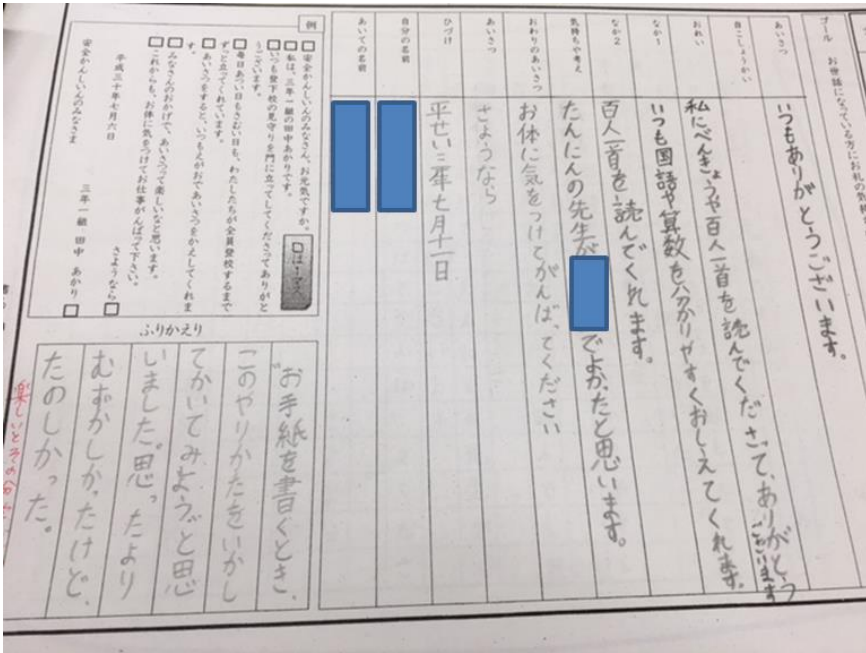 ゴール お世話になっている方にお礼の気持
あいさつ
いつもありがとうございます。
自こしょうかい
おれい
私にべんきょうや百人一首を読んでくださって、ありがとうございます
なか1
いつも国語や算数を分かりやすくおしえてくれます。
なか2
百人一首を読んでくれます。
気持ちや考え
たんにんの先生が でよかったと思います。
おわりのあいさつ
お体に気をつけてがんばってください
あいさつ
さようなら
ひづけ
平せい三十年七月十一日
自分の名前
あいての名前
例
□は1マス
□安全かんしいんのみなさん、お元気ですか。
□私は、三年一組の田中あかりです。
□いつも登下校の見守りを門に立ってしてくださってありがと
うございます。
□毎日あつい日もさむい日も、わたしたちが全員登校するまで
ずっと立ってくれています。
□あいさつをすると、いつもえがおであいさつをかえしてくれま
す。
□みなさんのおかげで、あいさつって楽しいなと思います。
□これからも、お体に気をつけてお仕事がんばって下さい。
さようなら□
平成三十年七月六日
三年一組 田中 あかり□
安全かんしいんのみなさま
ふりかえり
お手紙を書くとき、
このやりかたをいかし
てかいてみようと思
いました。思ったより
むずかしかったけど、
たのしかった。